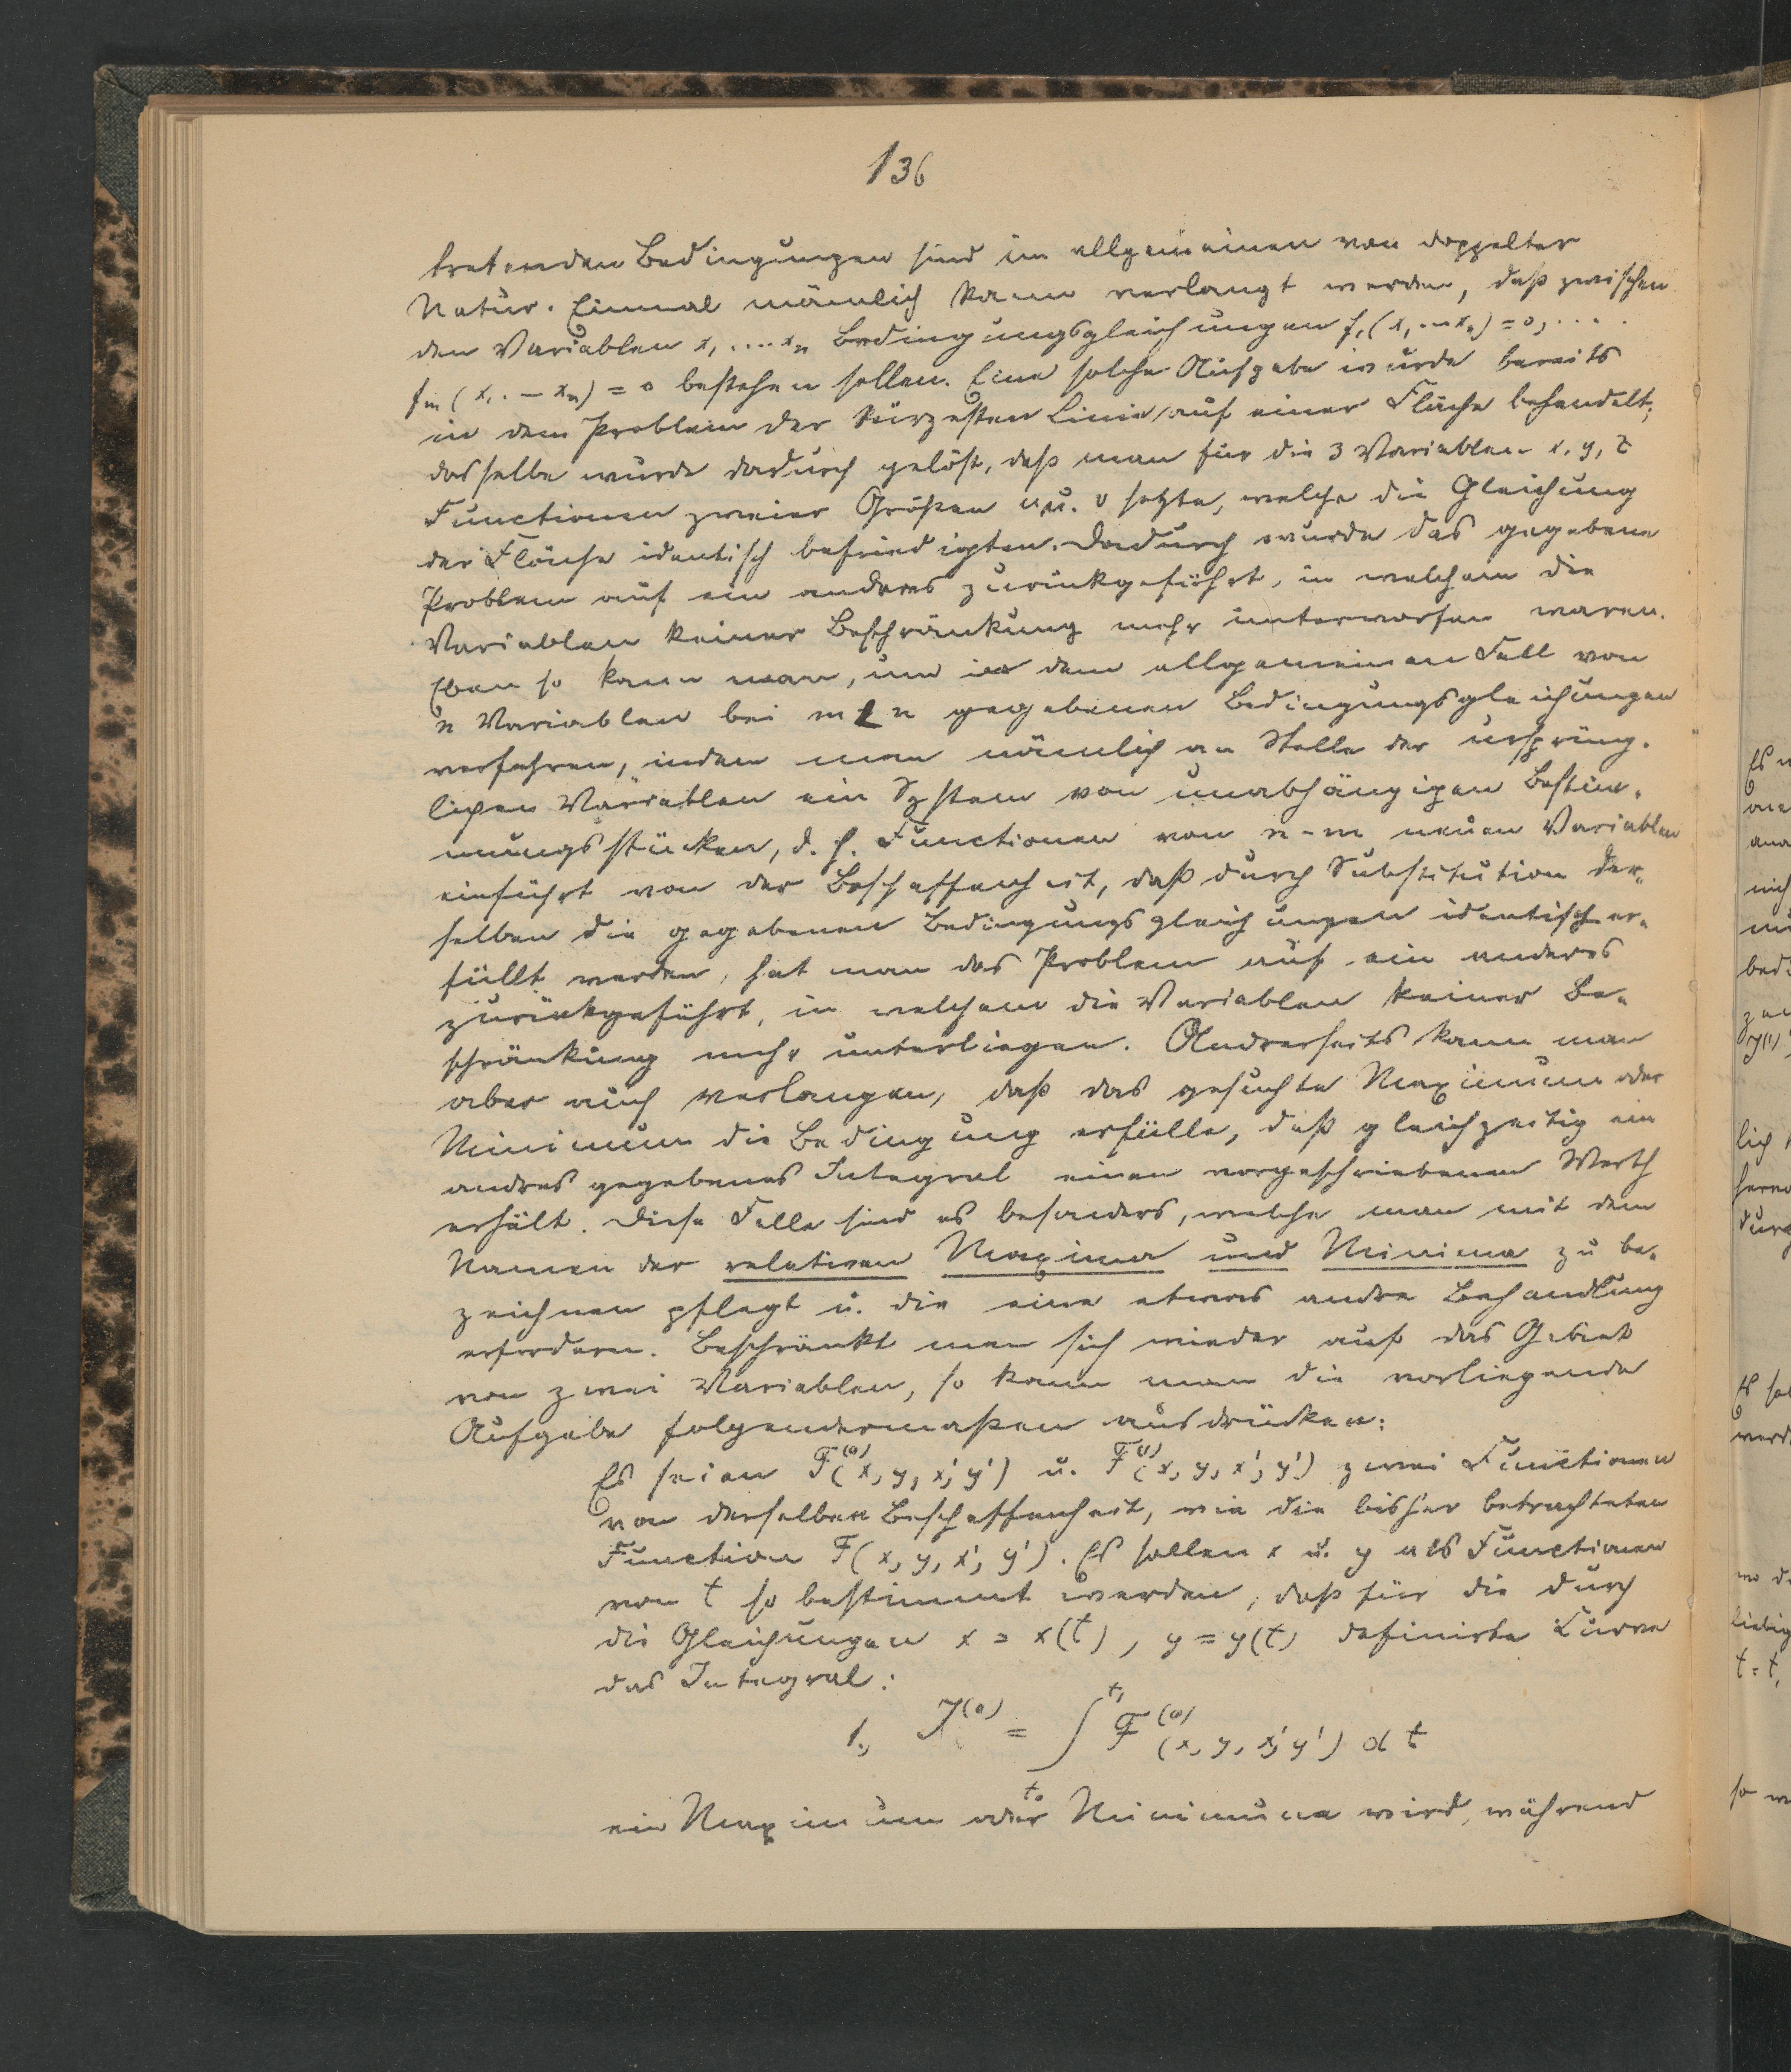 136
tretenden Bedingungen sind im allgemeinen von doppelter
Natur. Einmal nämlich kann verlangt werden, daß zwischen
den Variablen x₁ .... xₙ Bedingungsgleichungen f₁(x₁ ... xₙ) = 0, ....
fₘ(x₁ . – xₙ) = 0 bestehen sollen. Eine solche Aufgabe wurde bereits
in dem Problem der kürzesten Linie auf einer Fläche behandelt;
dasselbe wurde dadurch gelöst, daß man für die 3 Variablen x, y, z
Functionen zweier Größen u u. v setzte, welche die Gleichung
der Fläche identisch befriedigten. Dadurch wurde das gegebene
Problem auf ein anderes zurückgeführt, in welchem die
Variablen keiner Beschränkung mehr unterworfen waren.
Eben so kann man, um in dem allgemeinen Fall von
n Variablen bei m < n gegebenen Bedingungsgleichungen
verfahren, indem man nämlich an Stelle der ursprüng-
lichen Variablen ein System von unabhängigen Bestim-
mungsstücken, d. h. Functionen von n-m neuen Variablen
einführt von der Beschaffenheit, daß durch Substitution der-
selben die gegebenen Bedingungsgleichungen identisch er-
füllt werden, hat man das Problem auf ein anderes
zurückgeführt, in welchem die Variablen keiner Be-
schränkung mehr unterliegen. Andrerseits kann man
aber auch verlangen, daß das gesuchte Maximum oder
Minimum die Bedingung erfülle, daß gleichzeitig ein
andres gegebenes Integral einen vorgeschriebenen Werth
erhält. Diese Fälle sind es besonders, welche man mit dem
Namen der relativen Maxima und Minima zu be-
zeichnen pflegt u. die eine etwas andre Behandlung
erfordern. Beschränkt man sich wieder auf das Gebiet
von zwei Variablen, so kann man die vorliegende
Aufgabe folgendermaßen ausdrücken:
Es seien F⁽⁰⁾(x, y, x', y') u. F⁽¹⁾(x, y, x', y') zwei Functionen
von derselben Beschaffenheit, wie die bisher betrachteten
Function F(x, y, x', y'). Es sollen x u. y als Functionen
von t so bestimmt werden, daß für die durch
die Gleichungen x = x(t), y = y(t) definirte Curve
das Integral:
1., J⁽⁰⁾ = ∫ₜ₀ᵗ¹ F⁽⁰⁾(x, y, x', y') dt
ein Maximum oder Minimum wird, während